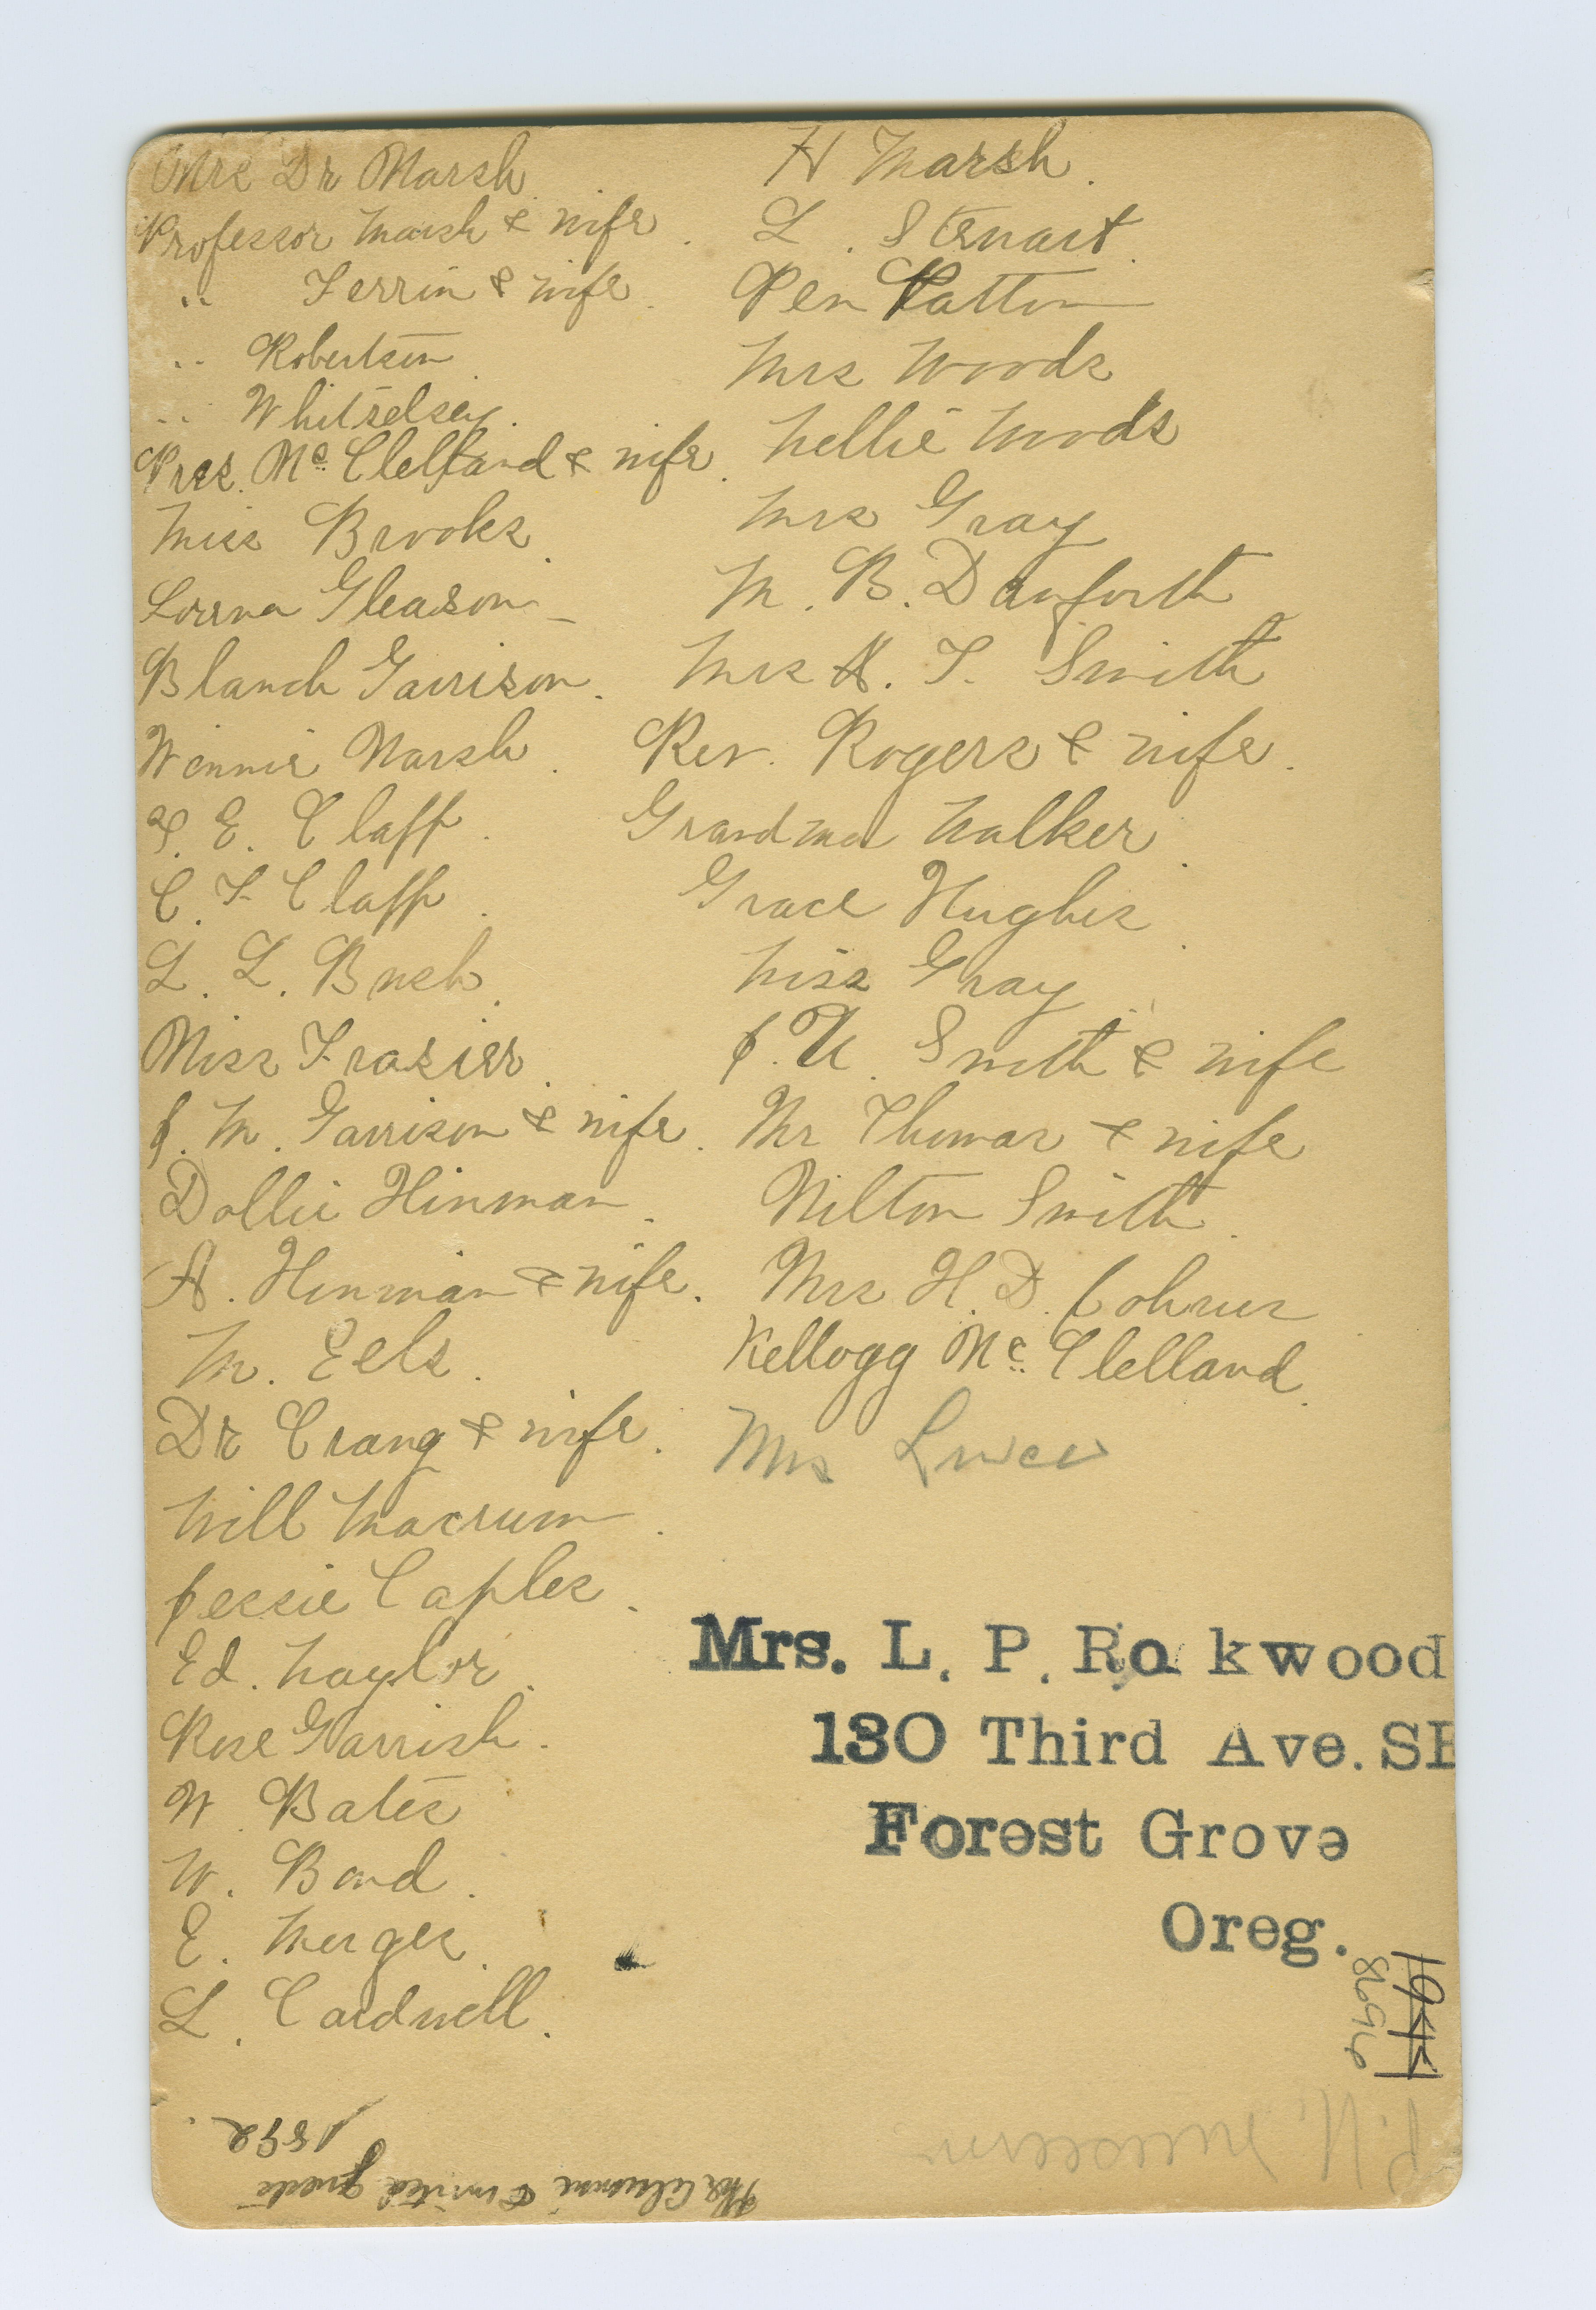 Mrs Dr Marsh
Professor Marsh & wife.
" Ferrin & wife.
" Robertson
" Whitelsey.
Pres. Mc Clelland & wife.
Miss Brooks.
Lorena Gleason
Blanch Garrison.
Winnie Marsh.
E. Clapp.
C. F. Clapp.
L. L. Bush.
Miss Frasier.
J. M. Garrison & wife.
Dollie Hinman.
A. Hinman & wife.
M. Eels.
Dr Crang & wife.
Will Macrum.
Jessie Caples.
Ed. Naylor.
Rose Garrish.
W. Bates
W. Bond.
E. Merges.
L. Cardwell.
H Marsh.
L. Stewart.
Pen Patton
Mrs Woods
Nellie Woods
Mrs Gray
M. B. Danforth
Mrs A. T. Smith
Rev. Rogers & wife.
Grandma Walker.
Grace Hughes.
Miss Gray
J. W. Smith & wife
Mr Thomas & wife
Milton Smith.
Mrs H. D. Johnes
Kellogg Mc Clelland.
Mrs Luce
Mrs. L. P. Ro kwood
130 Third Ave. SE
Forest Grove
Oreg.
1944
8696
P. U. Museum
The Alumni & invited guests
1892.